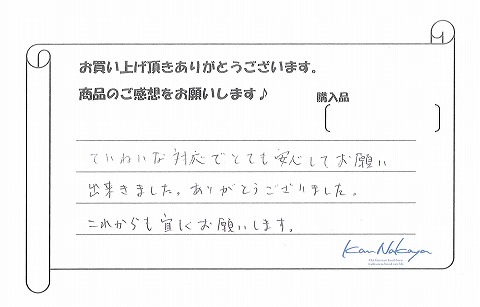 お買い上げ頂きありがとうございます。
商品のご感想をお願いします♪
購入品
ていねいな対応でとても安心してお願い
出来きました。ありがとうございました。
これからも宜しくお願いします。
Kan Nakaya